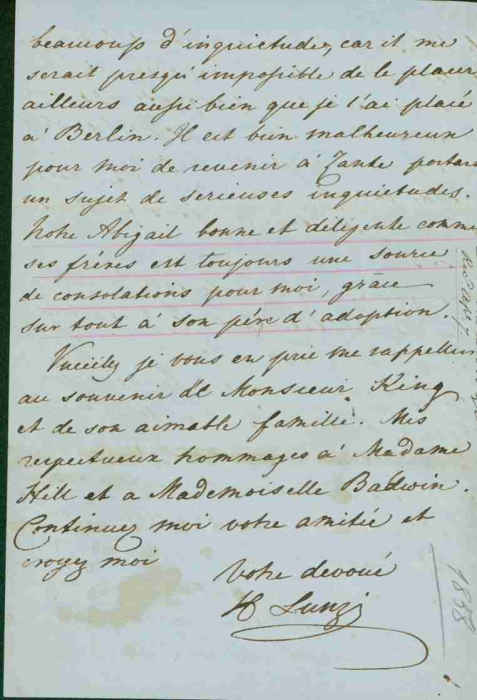 beaucoup d'inquietude, car il me
serait presqu'impossible de le placer
ailleurs aussi bien que je l'ai placé
à Berlin. Il est bien malheureux
pour moi de revenir à Zante portant
un sujet de serieuses inquietudes.
Notre Abigail bonne et diligente comme
ses fréres est toujours une source
de consolations pour moi, grâce
sur tout à son pére d'adoption.
Vueillez je vous en prie me rappeller
au souvenir de Monsieur King
et de son aimable famille. Mes
respectueux hommages à Madame
Hill et a Mademoiselle Baldwin.
Continuez moi votre amitié et
croyez moi
Votre devoué
Lunzi
1858